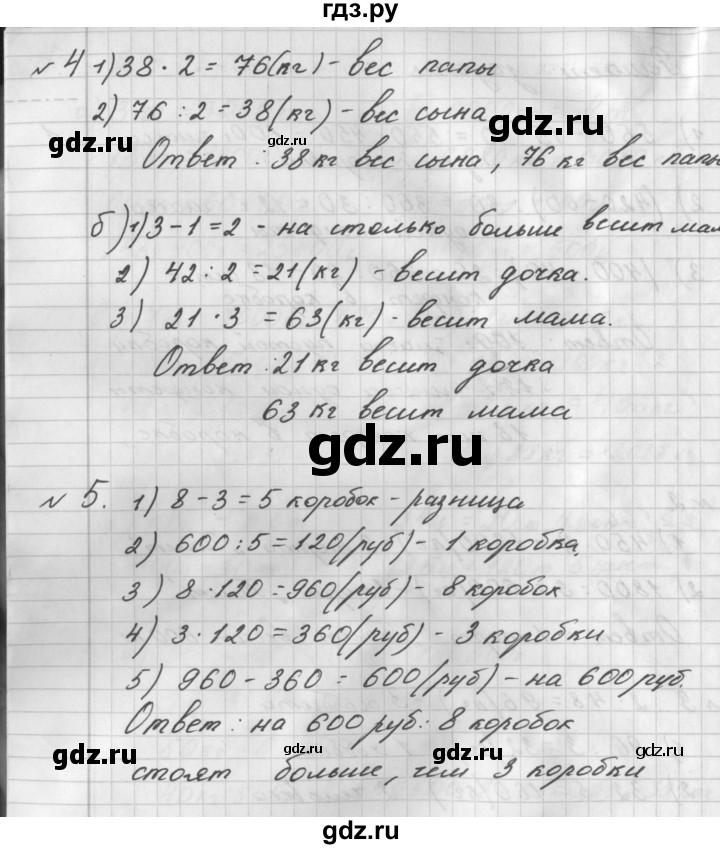 гдз.ру
№ 4 1) 38 · 2 = 76 (кг) - вес папы
2) 76 : 2 = 38 (кг) - вес сына
gdz.ru
gdz.ru
Ответ : 38 кг вес сына, 76 кг вес папы
б) 1) 3 - 1 = 2 - на столько больше весит мам
gdz.ru
2) 42 : 2 = 21 (кг) - весит дочка.
3) 21 · 3 = 63 (кг) - весит мама.
Ответ : 21 кг весит дочка
gdz.ru
63 кг весит мама
gdz.ru
№ 5. 1) 8 - 3 = 5 коробок - разница
2) 600 : 5 = 120 (руб) - 1 коробка.
3) 8 · 120 = 960 (руб) - 8 коробок
4) 3 · 120 = 360 (руб) - 3 коробки
5) 960 - 360 = 600 (руб) - на 600 руб.
Ответ : на 600 руб. 8 коробок
gdz.ru
gdz.ru
gdz.ru
gdz.ru
стоят больше, чем 3 коробки
gdz.ru